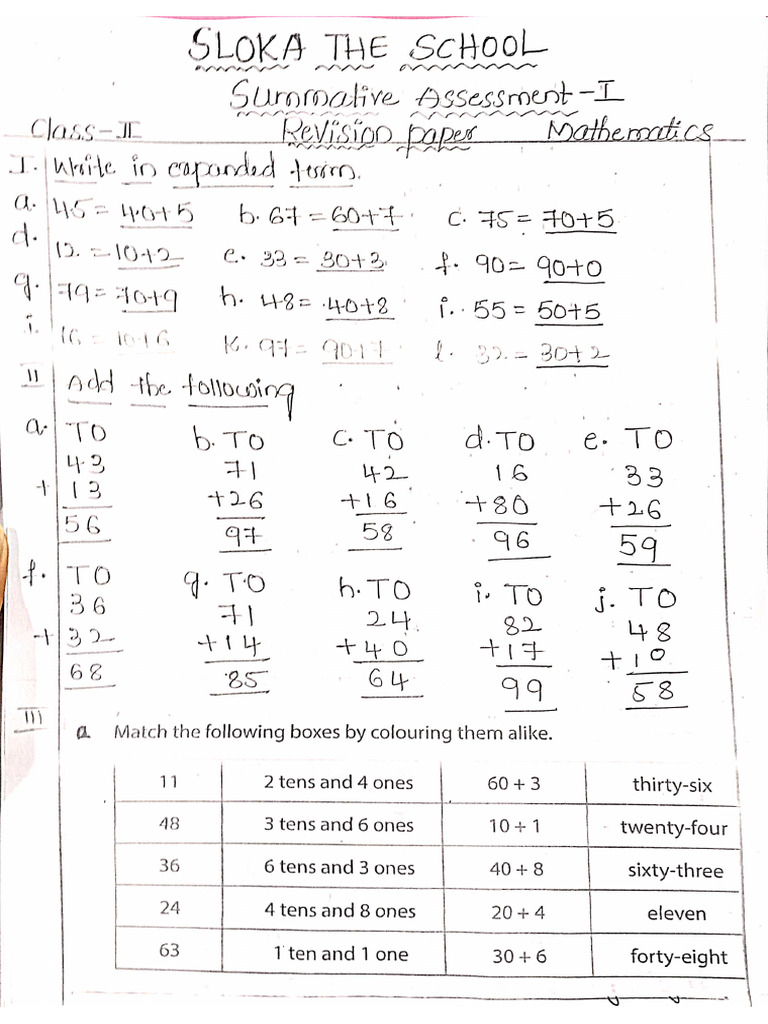 SLOKA THE SCHOOL
Summative Assessment-I
Class-II Revision paper Mathematics
I. Write in expanded term.
a. 45 = 40+5 b. 67 = 60+7 c. 75 = 70+5
d. 12 = 10+2 e. 33 = 30+3 f. 90 = 90+0
g. 79 = 70+9 h. 48 = 40+8 i. 55 = 50+5
i. 16 = 10+6 K. 97 = 90+7 l. 32 = 30+2
II Add the following
a. TO b. TO c. TO d. TO e. TO
43 71 42 16 33
+ 13 +26 +16 +80 +26
56 97 58 96 59
f. TO g. TO h. TO i. TO j. TO
36 71 24 82 48
+ 32 +14 +40 +17 +10
68 85 64 99 58
III
a Match the following boxes by colouring them alike.
11 2 tens and 4 ones 60 + 3 thirty-six
48 3 tens and 6 ones 10 + 1 twenty-four
36 6 tens and 3 ones 40 + 8 sixty-three
24 4 tens and 8 ones 20 + 4 eleven
63 1 ten and 1 one 30 + 6 forty-eight